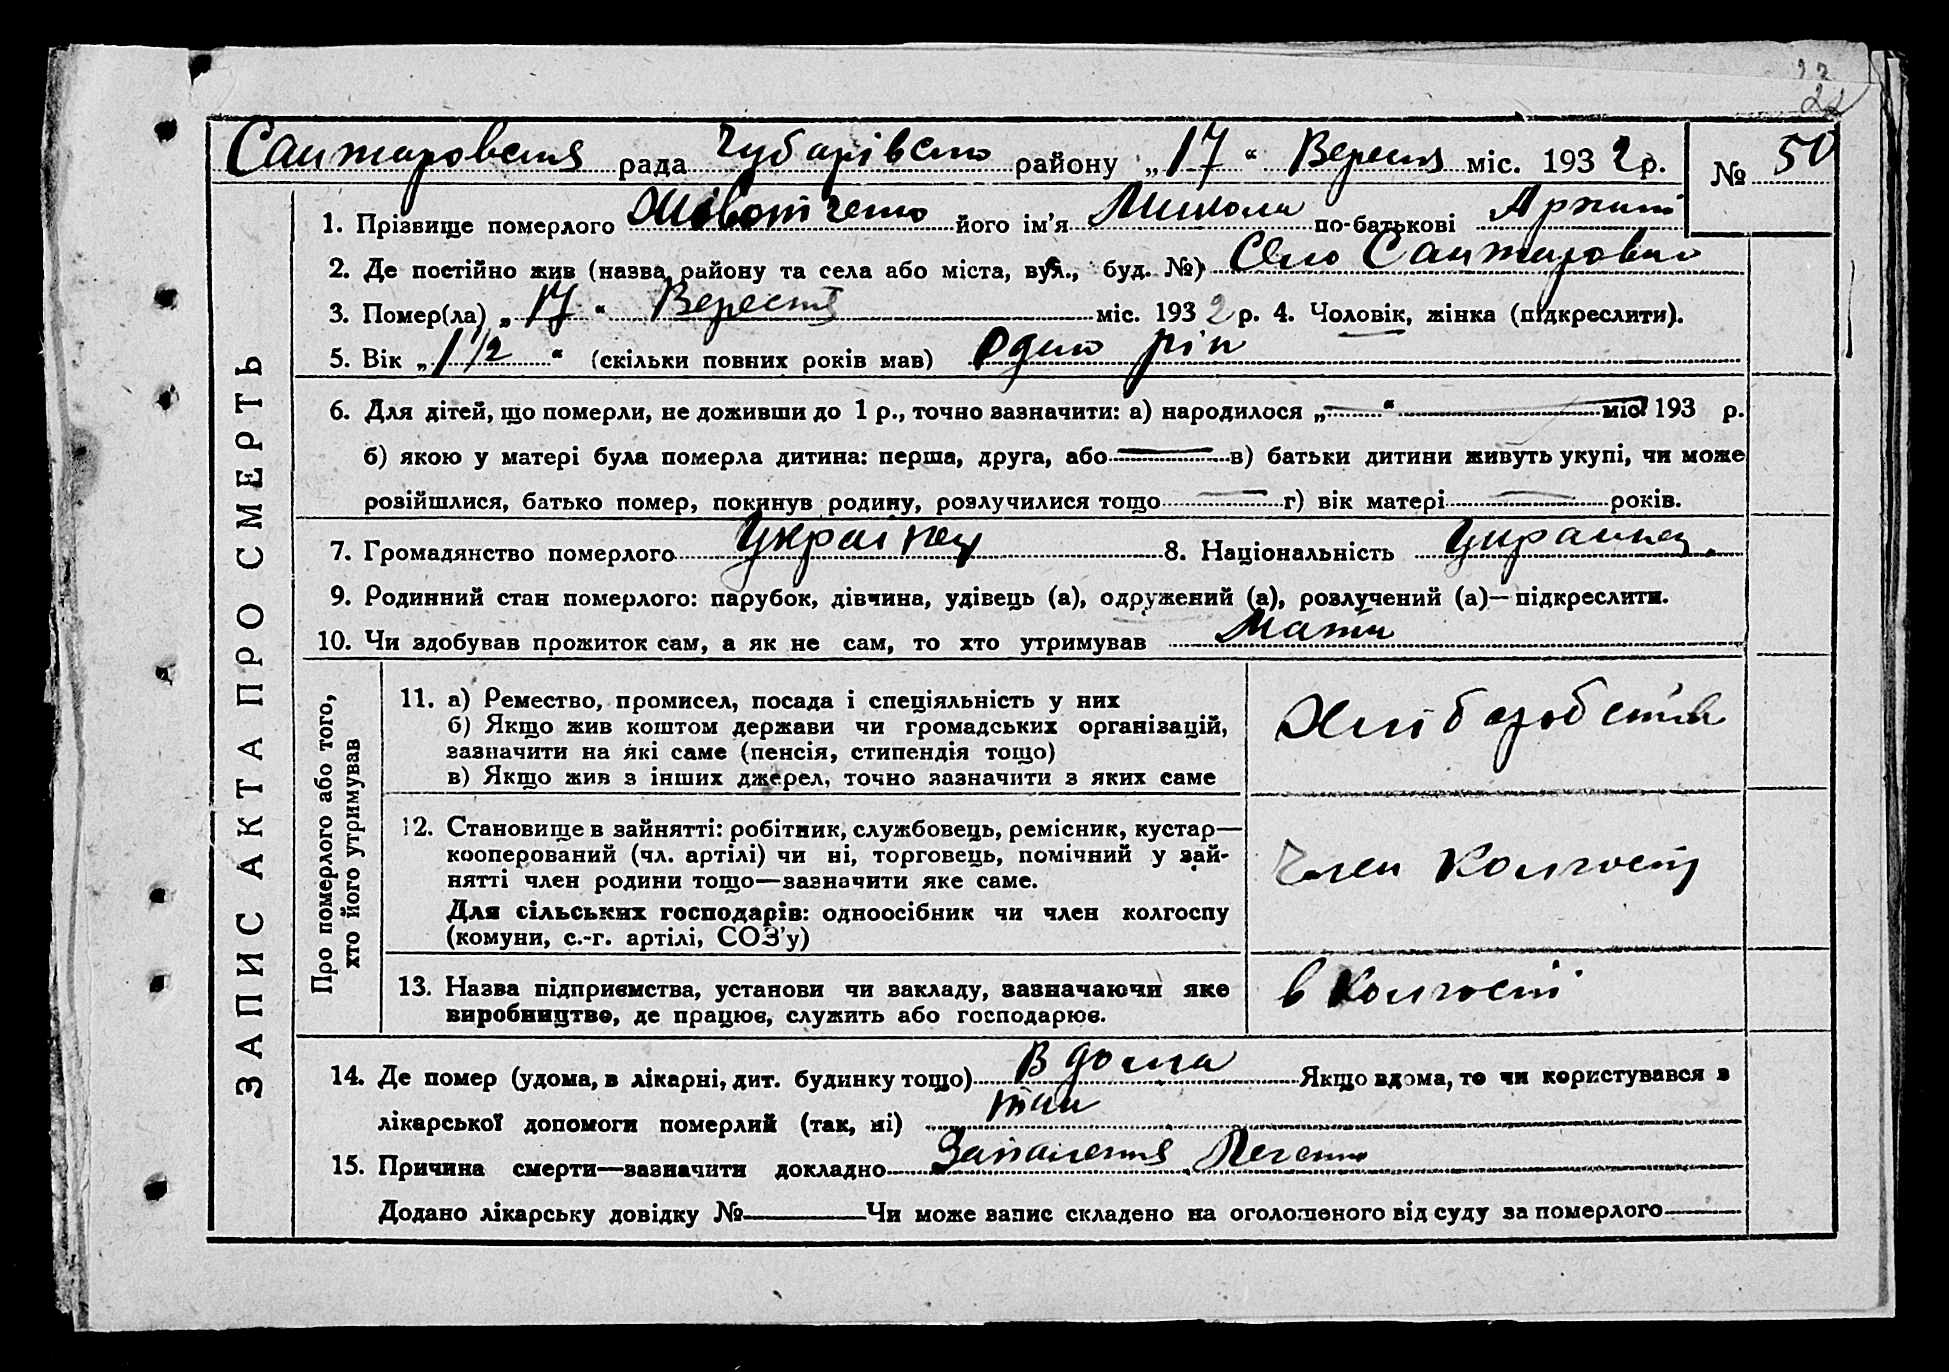 22
Сантаровська рада Чубарівсько району „17“ Вересня міс. 1932 р. № 50
1. Прізвище померлого його ім’я Микола по-батькові
2. Де постійно жив (назва району та села або міста, вул., буд. №) Село
3. Помер(ла) „17“ Вересня міс. 1932 р. 4. Чоловік, жінка (підкреслити).
5. Вік „1 1/2“ (скільки повних років мав) Один рік
6. Для дітей, що померли, не доживши до 1 р., точно зазначити: а) народилося „ “ міс. 193 р.
б) якою у матері була померла дитина: перша, друга, або в) батьки дитини живуть укупі, чи може
розійшлися, батько помер, покинув родину, розлучилися тощо г) вік матері років.
7. Громадянство померлого Украінец 8. Національність Украинец.
9. Родинний стан померлого: парубок, дівчина, удівець (а), одружений (а), розлучений (а)—підкреслити.
10. Чи здобував прожиток сам, а як не сам, то хто утримував Мати
ЗАПИС АКТА ПРО СМЕРТЬ
Про померлого або того,
хто його утримував
11. а) Ремество, промисел, посада і спеціяльність у них
б) Якщо жив коштом держави чи громадських організацій,
зазначити на які саме (пенсія, стипендія тощо)
в) Якщо жив з інших джерел, точно зазначити з яких саме
12. Становище в зайнятті: робітник, службовець, ремісник, кустар—
кооперований (чл. артілі) чи ні, торговець, помічний у зай-
нятті член родини тощо—зазначити яке саме.
Для сільських господарів: одноосібник чи член колгоспу
(комуни, с.-г. артілі, СОЗ’у)
Член Колгоспу
13. Назва підприємства, установи чи закладу, зазначаючи яке
виробництво, де працює, служить або господарює.
в Колгоспі
14. Де помер (удома, в лікарні, дит. будинку тощо) В дома Якщо вдома, то чи користувався з
лікарської допомоги померлий (так, ні) так
15. Причина смерти—зазначити докладно Запалення Печенки
Додано лікарську довідку № Чи може запис складено на оголошеного від суду за померлого